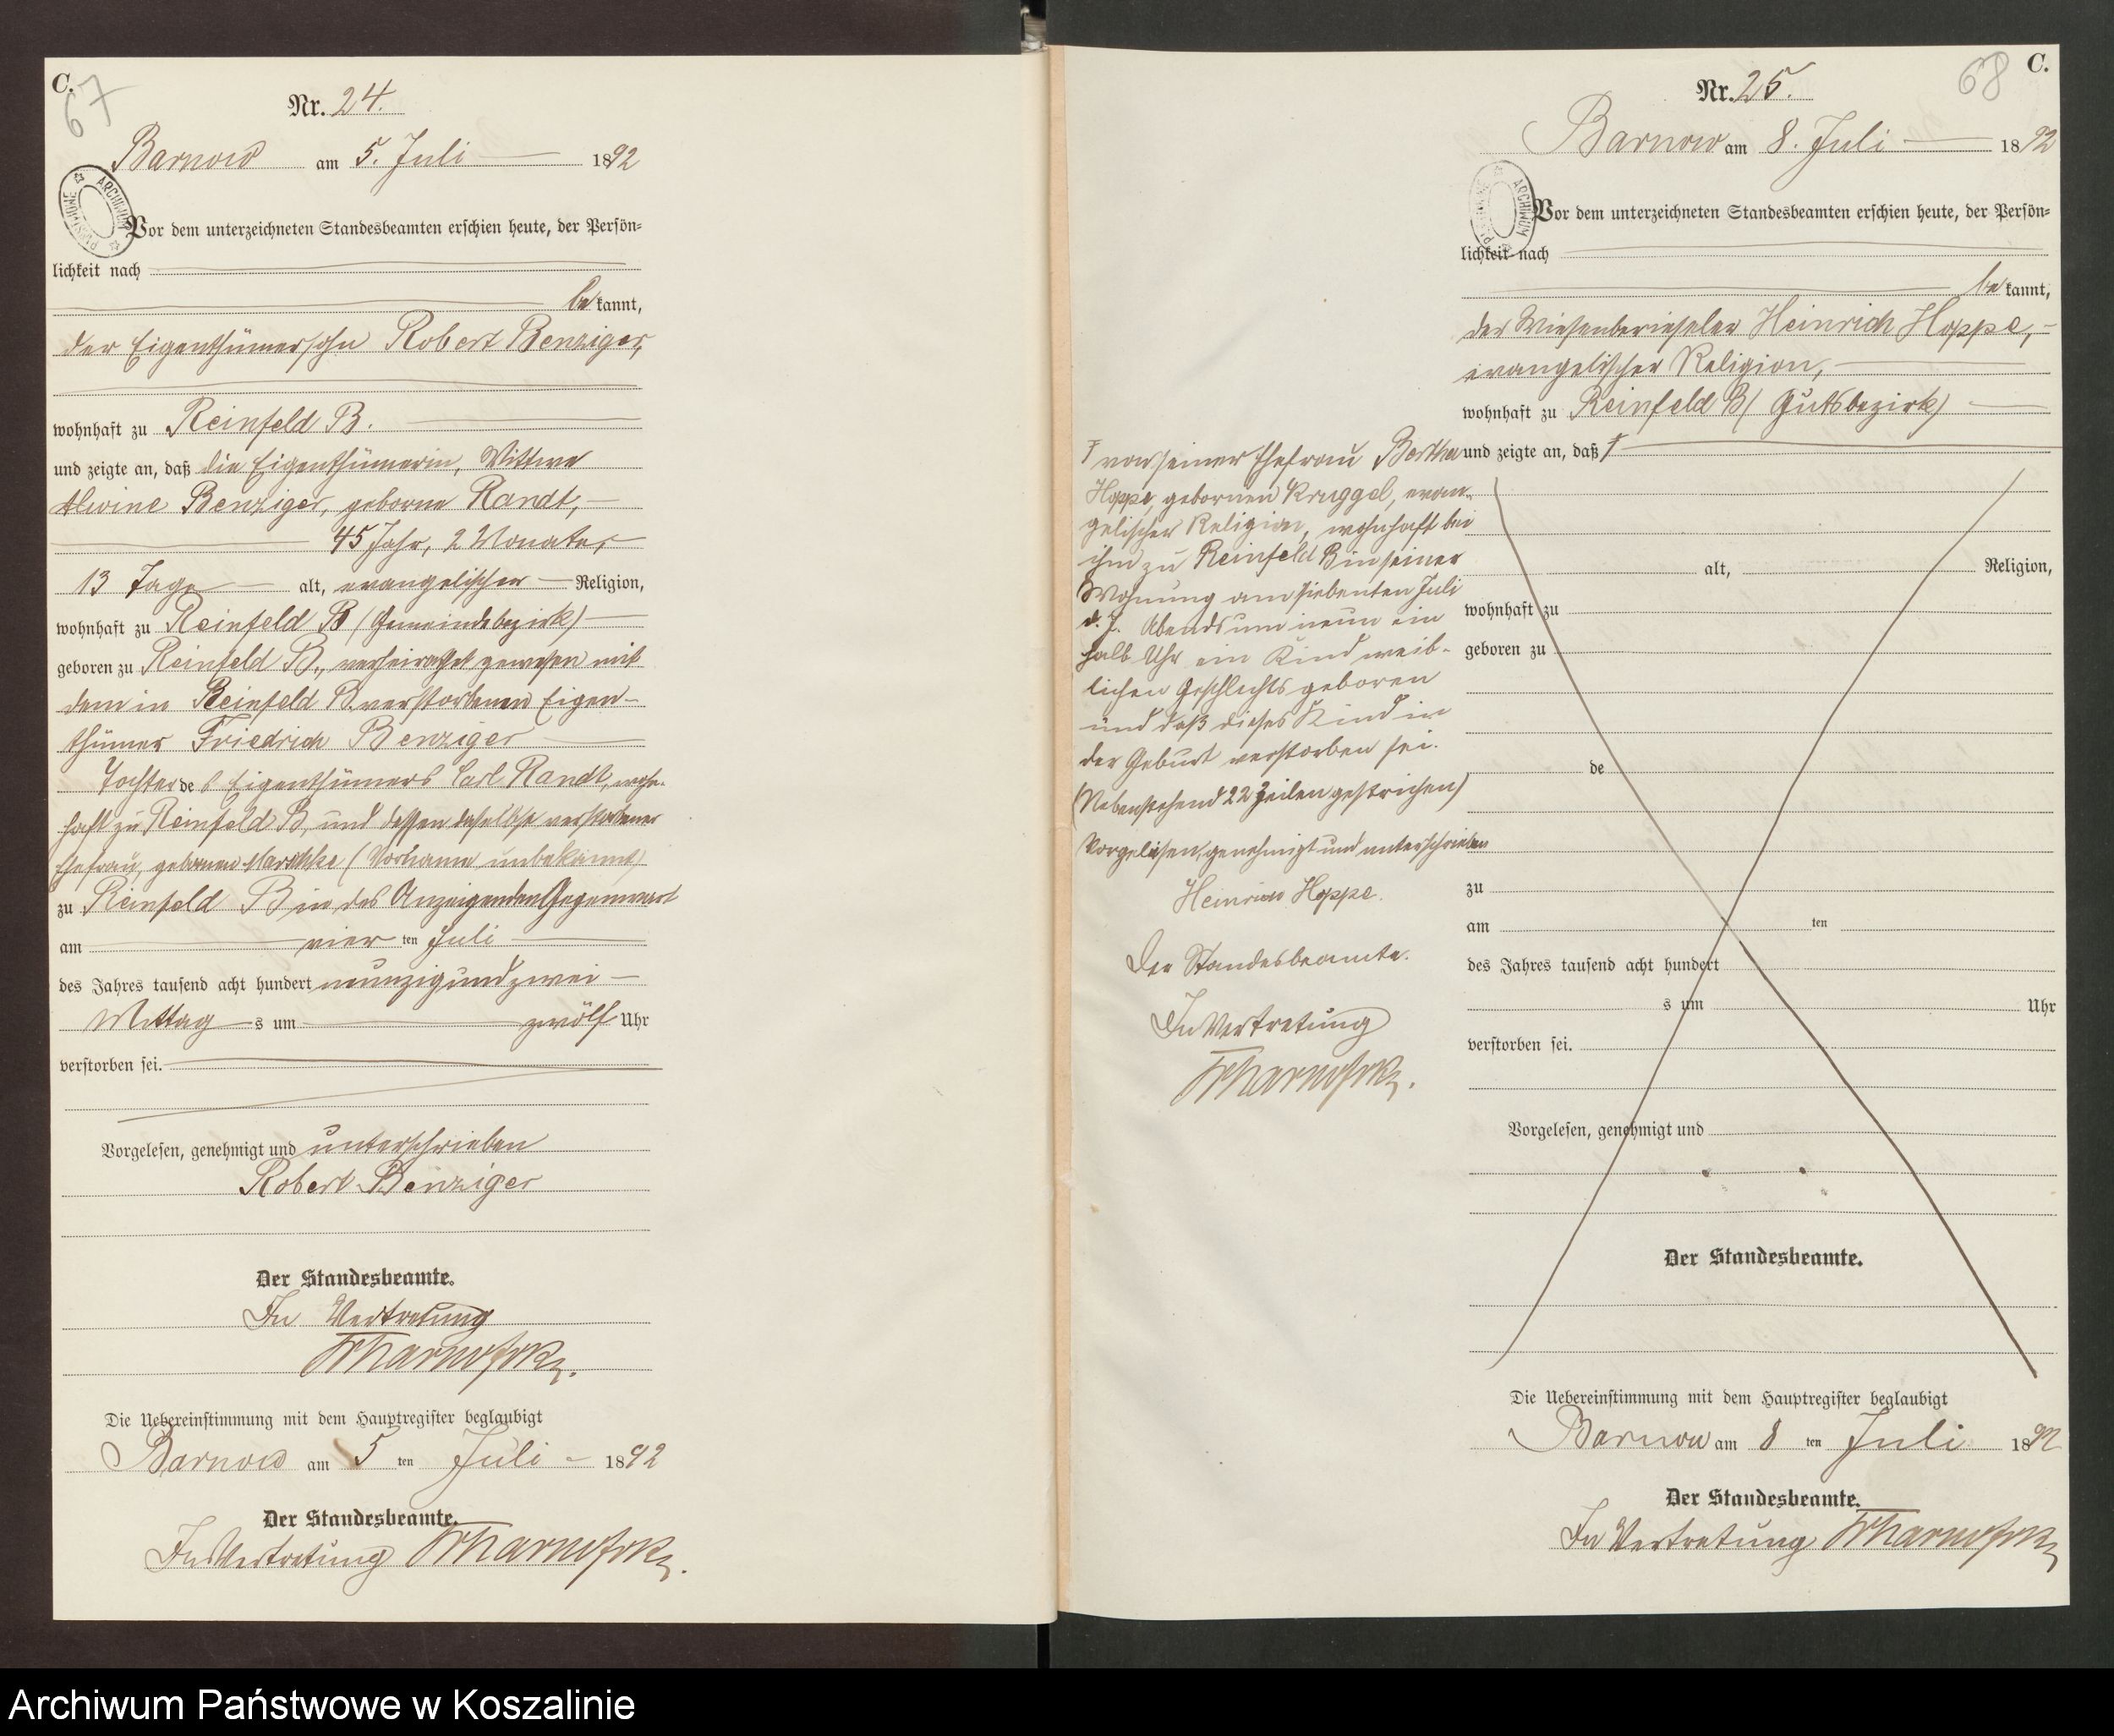 C.
67
Nr. 24.
Barnow am 5. Juli 1892
ARCHIWUM PAŃSTWOWE
Vor dem unterzeichneten Standesbeamten erschien heute, der Persön=
lichkeit nach
be kannt,
der Eigenthümersohn Robert Benziger,
wohnhaft zu Reinfeld B.
und zeigte an, daß die Eigenthümerin, Wittwe
Alwine Benziger, geborne Randt,
45 Jahr, 2 Monate,
13 Tage alt, evangelischer Religion,
wohnhaft zu Reinfeld B (Gemeindebezirk)
geboren zu Reinfeld B., verheirathet gewesen mit
dem in Reinfeld B. verstorbenen Eigen-
thümer Friedrich Benziger
Tochter de s Eigenthümers Carl Randt, wohn-
haft zu Reinfeld B, und dessen daselbst verstorbener
Ehefrau, gebornen (Vorname unbekannt)
zu Reinfeld B in des Anzeigenden Gegenwart
am vier ten Juli
des Jahres tausend acht hundert neunzig und zwei
Mittag s um zwölf Uhr
verstorben sei.
Vorgelesen, genehmigt und unterschrieben
Robert Benziger
Der Standesbeamte.
In Vertretung
Die Uebereinstimmung mit dem Hauptregister beglaubigt
Barnow am 5 ten Juli 1892
Der Standesbeamte.
In Vertretung
68
C.
Nr. 25.
Barnow am 8. Juli 1892
ARCHIWUM PAŃSTWOWE
Vor dem unterzeichneten Standesbeamten erschien heute, der Persön=
lichkeit nach
be kannt,
der Wiesenberieseler Heinrich Hoppe,
evangelischer Religion,
wohnhaft zu Reinfeld B (Gutsbezirk)
und zeigte an, daß
von seiner Ehefrau Bertha
Hoppe, gebornen Kruggel, evan-
gelischer Religion, wohnhaft bei
ihm zu Reinfeld B in seiner
Wohnung am siebenten Juli
d. J. Abends um neun ein
halb Uhr ein Kind weib-
lichen Geschlechts geboren
und daß dieses Kind in
der Geburt verstorben sei.
(Nebenstehend 22 Zeilen gestrichen)
Vorgelesen, genehmigt und unterschrieben
Heinrich Hoppe.
Der Standesbeamte.
In Vertretung
alt, Religion,
wohnhaft zu
geboren zu
de
zu
am ten
des Jahres tausend acht hundert
s um Uhr
verstorben sei.
Vorgelesen, genehmigt und
Der Standesbeamte.
Die Uebereinstimmung mit dem Hauptregister beglaubigt
Barnow am 8 ten Juli 1892
Der Standesbeamte.
In Vertretung
Archiwum Państwowe w Koszalinie